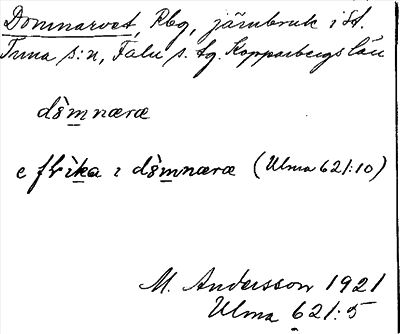 Domnarvet, Rbg, järnbruk i St.
Tuna s:n, Falu s. tg. Kopparbergs län
dòmnæræ
e frìka ı dòmnæræ (Ulma 621:10)
M. Andersson 1921
Ulma 621:5